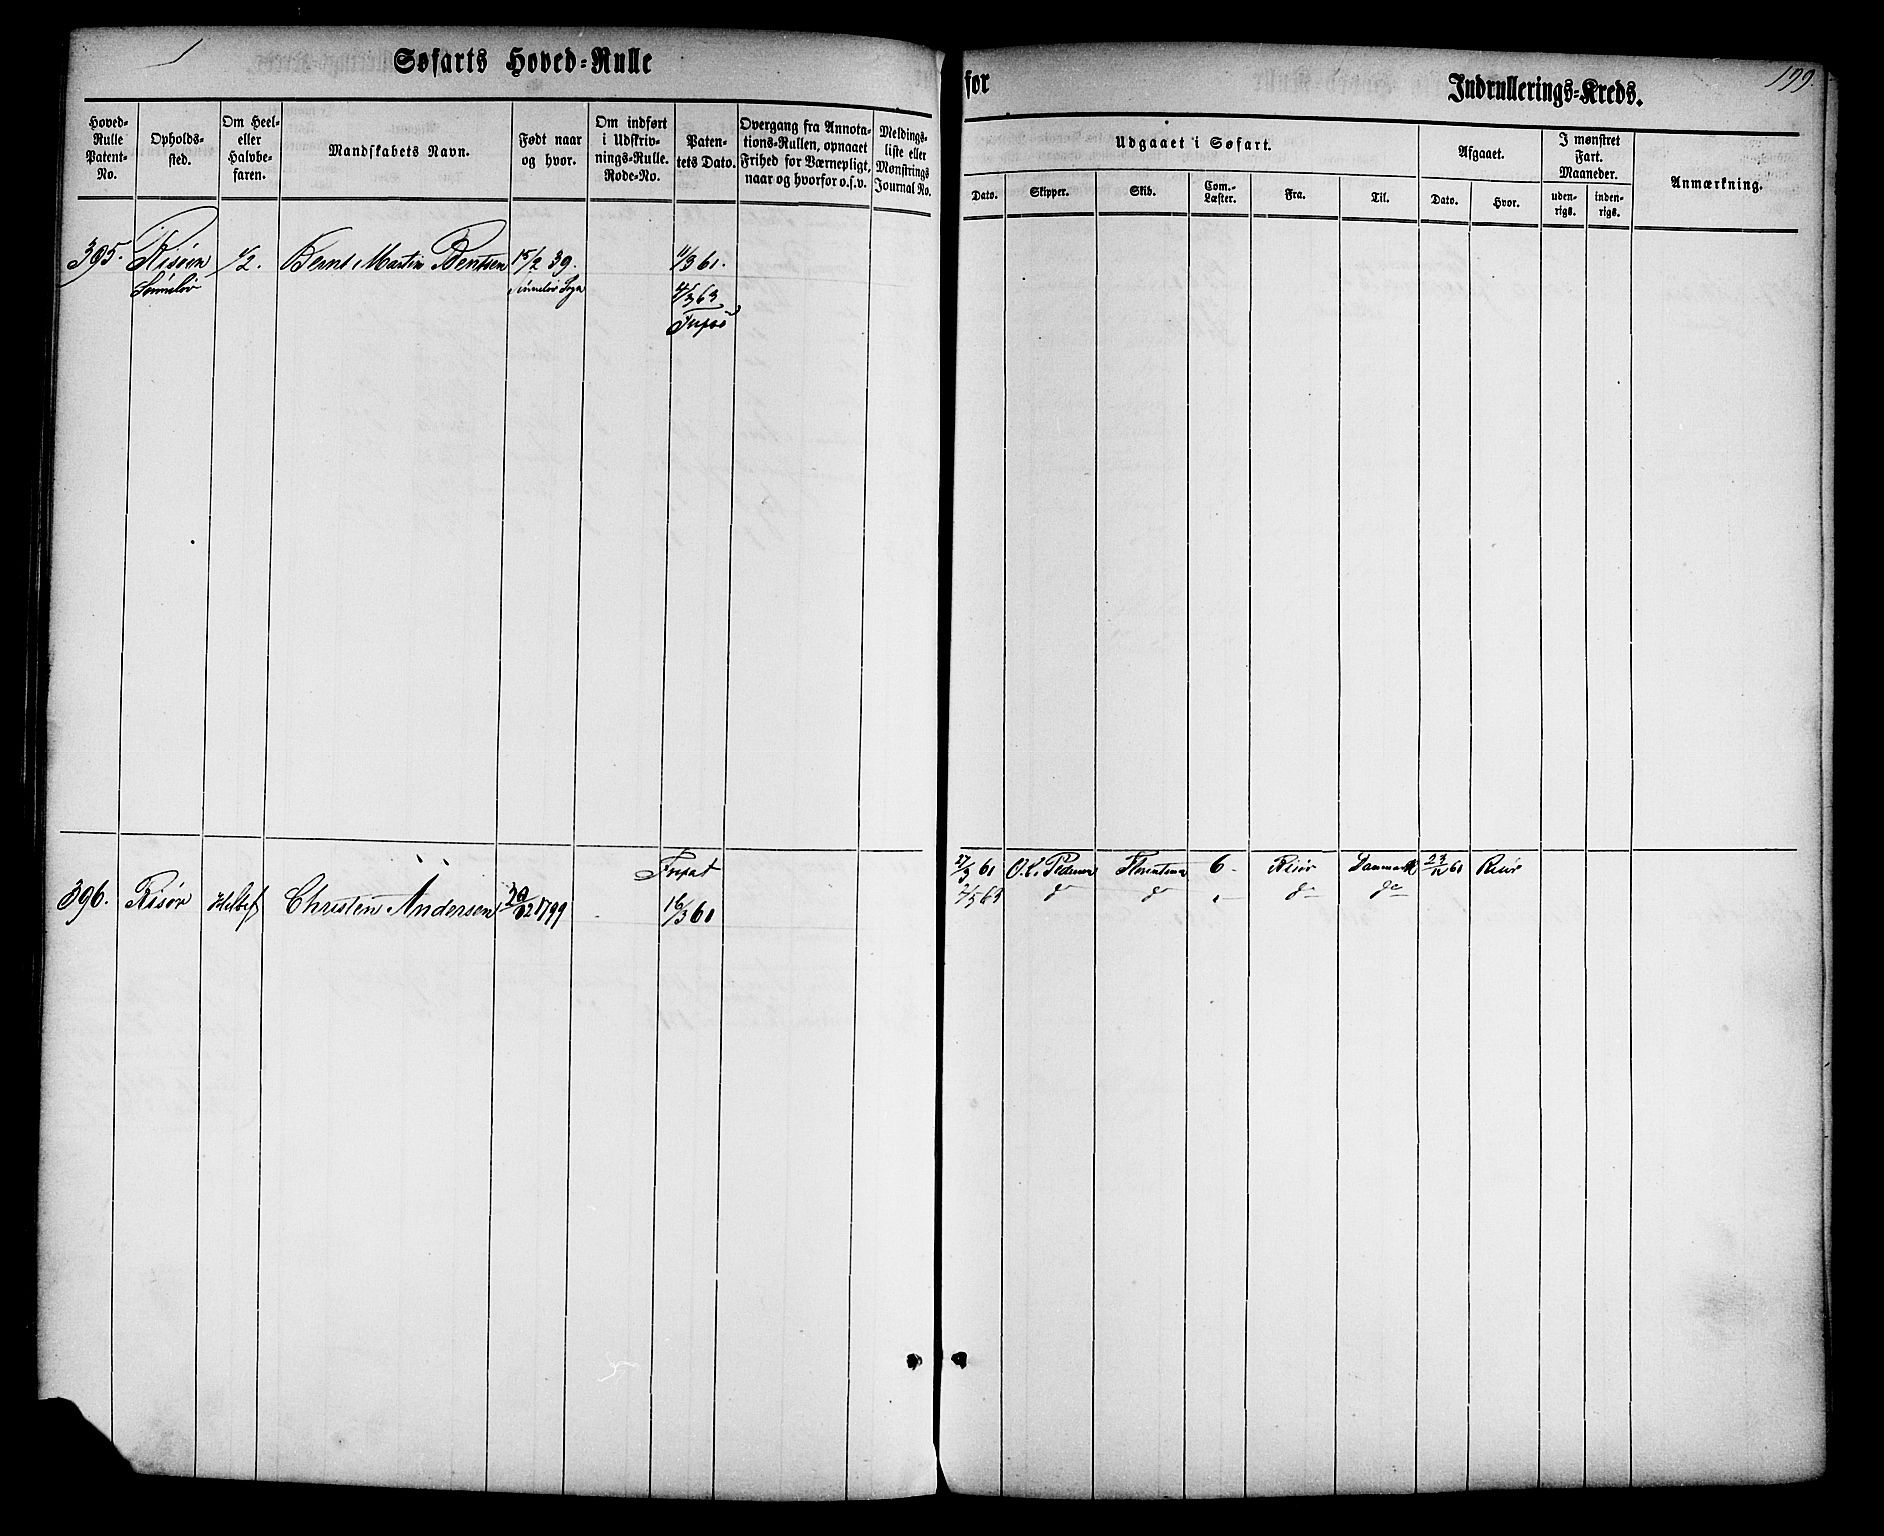 Søfarts Hoved-Rulle
for
Indrullerings-Kreds.
199.
Hoved-
Rulle
Patent-
No.
Opholds-
sted.
Om Heel-
eller
Halvbe-
faren.
Mandskabets Navn.
Født naar
og hvor.
Om indført
i Udskriv-
nings-Rulle.
Rode-No.
Paten-
tets Dato.
Overgang fra Annota-
tions-Rullen, opnaaet
Frihed for Værnepligt,
naar og hvorfor o.s.v.
Meldings-
liste eller
Mønstrings
Journal No.
Udgaaet i Søfart.
Dato.
Skipper.
Skib.
Com.-
Læster.
Fra.
Til.
Afgaaet.
Dato.
Hvor.
I mønstret
Fart.
Maaneder.
uden-
rigs.
inden-
rigs.
Anmærkning.
395. Risøen 1/2. Bernt Martin Bentsen 15/2 39. 11/3 61.
/3 63
396. Risør Helbef Christen Andersen 20/12 1799 16/3 61
27/3 61 O. C. Pedersen 6. Risør Danmark 23/12 61 Risør
2/5 63 do do " do do